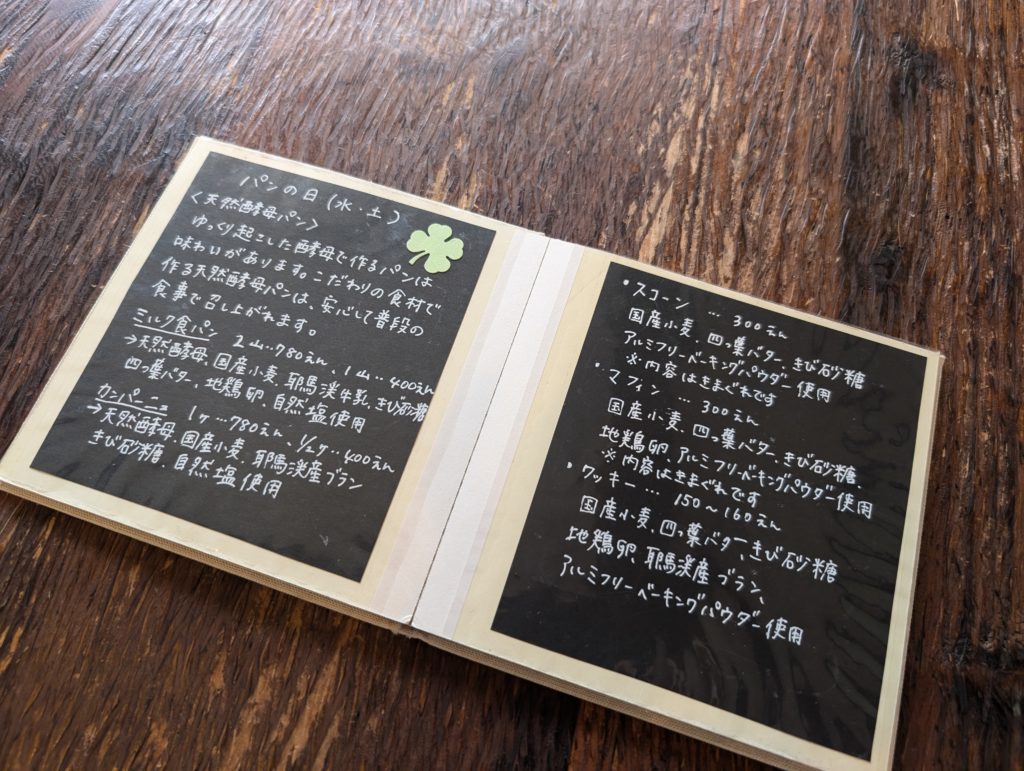 パンの日(水・土)
〈天然酵母パン〉
ゆっくり起こした酵母で作るパンは
味わいがあります。こだわりの食材で
作る天然酵母パンは、安心して普段の
食事で召し上がれます。
ミルク食パン 2山…780えん、1山…400えん
→天然酵母、国産小麦、耶馬渓牛乳、きび砂糖
四っ葉バター、地鶏卵、自然塩使用
カンパーニュ 1ヶ…780えん、1/2ヶ…400えん
→天然酵母、国産小麦、耶馬渓産ブラン
きび砂糖、自然塩使用
・スコーン … 300えん
国産小麦、四っ葉バター、きび砂糖
アルミフリーベーキングパウダー使用
※内容はきまぐれです
・マフィン … 300えん
国産小麦、四っ葉バター、きび砂糖、
地鶏卵、アルミフリーベーキングパウダー使用
※内容はきまぐれです
・クッキー … 150〜160えん
国産小麦、四っ葉バター、きび砂糖
地鶏卵、耶馬渓産ブラン、
アルミフリーベーキングパウダー使用